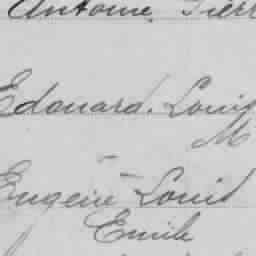 Antoine. Pierr
Edouard. Louis
M
Eugène Louis
Emile